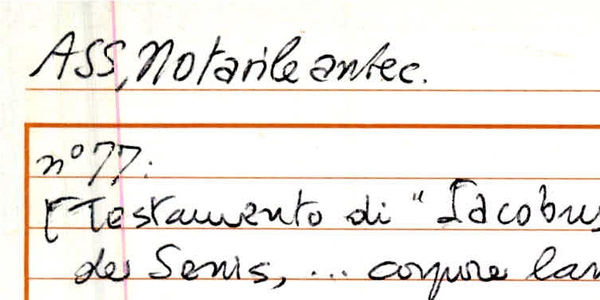 ASS, Notarile antec.
n° 77:
[Testamento di "Jacobus
de Senis, ... corpore lan